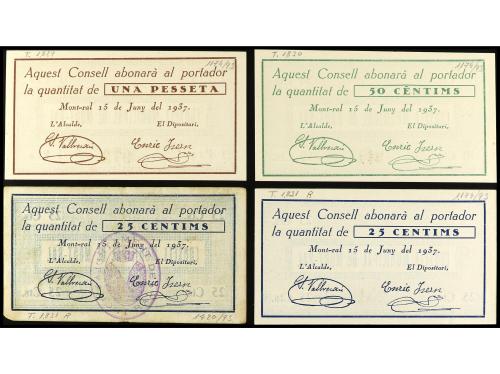 T. 1819
1174/93
Aquest Consell abonarà al portador
la quantitat de UNA PESSETA
Mont-ral 15 de Juny del 1937.
L'Alcalde, El Dipositari,
Enric Isern
T. 1820
1174/93
Aquest Consell abonarà al portador
la quantitat de 50 CÈNTIMS
Mont-ral 15 de Juny del 1937.
L'Alcalde, El Dipositari,
Enric Isern
Aquest Consell abonarà al portador
la quantitat de 25 CENTIMS
Mont-ral 15 de Juny del 1937.
L'Alcalde, El Dipositari,
Enric Isern
T. 1821 A
1920/93
T. 1821 A
1174/93
Aquest Consell abonarà al portador
la quantitat de 25 CENTIMS
Mont-ral 15 de Juny del 1937.
L'Alcalde, El Dipositari,
Enric Isern